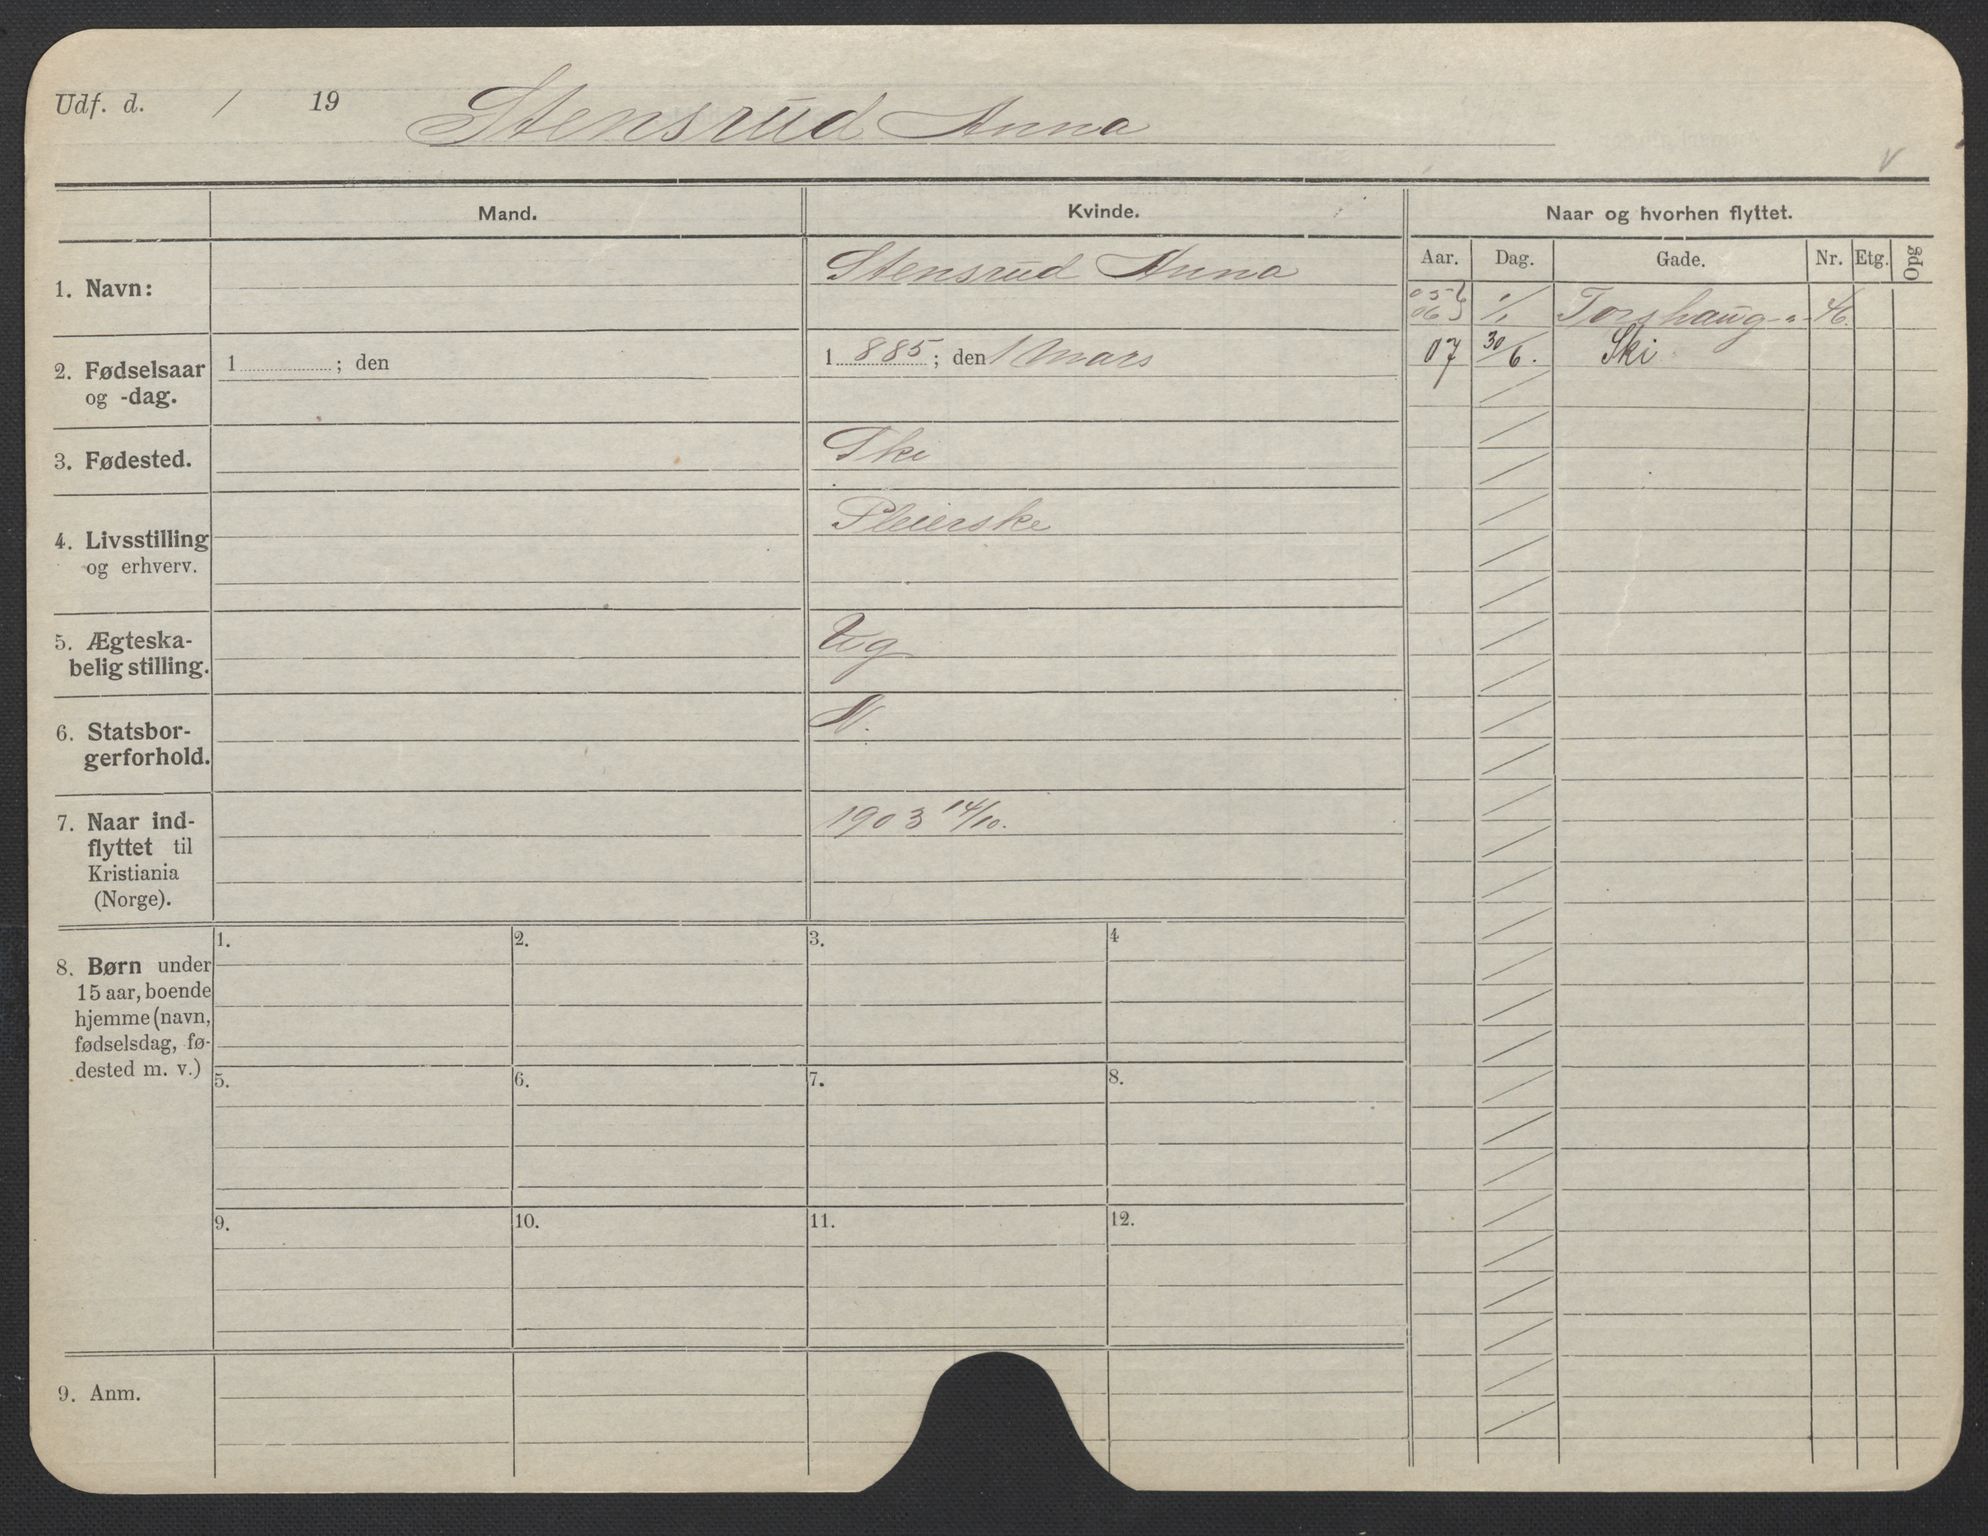 Udf. d. / 19
Stensrud Anna
Mand.
Kvinde.
Naar og hvorhen flyttet.
Aar. Dag. Gade. Nr. Etg. Opg
1. Navn:
Stensrud Anna
05
06 1/1 Torshaug 46.
07 30/6. Ski
2. Fødselsaar
og -dag.
1 ; den
1 885 ; den 1 Mars
3. Fødested.
Ski
4. Livsstilling
og erhverv.
Pleierske
5. Ægteska-
belig stilling.
Ug
6. Statsbor-
gerforhold.
N.
7. Naar ind-
flyttet til
Kristiania
(Norge).
1903 14/10.
8. Børn under
15 aar, boende
hjemme (navn,
fødselsdag, fø-
dested m. v.)
1. 2. 3. 4
5. 6. 7. 8.
9. 10. 11. 12.
9. Anm.